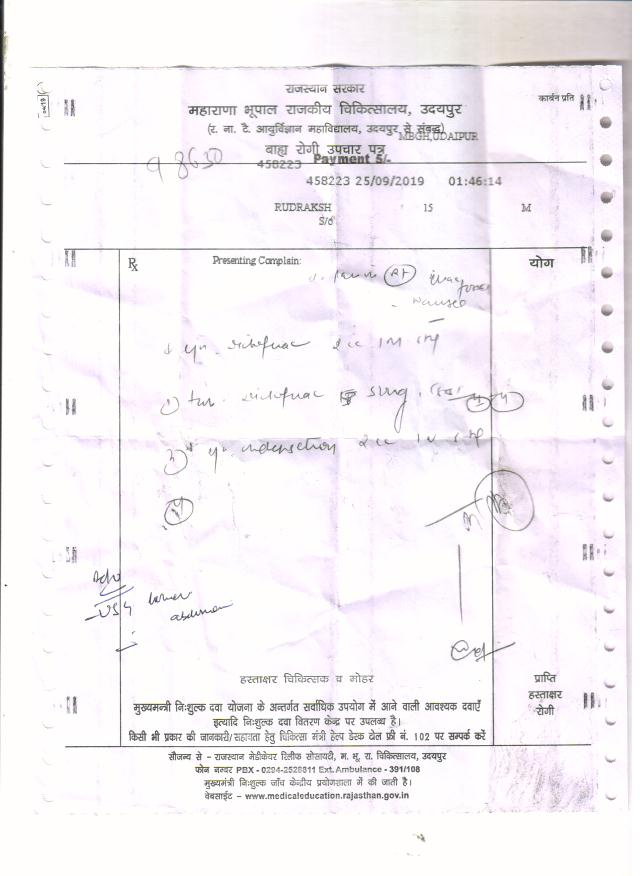 राजस्थान सरकार
महाराणा भूपाल राजकीय चिकित्सालय, उदयपुर
कार्बन प्रति
(र. ना. टै. आयुर्विज्ञान महाविद्यालय, उदयपुर से संबद्ध)
MBGH,UDAIPUR
बाह्य रोगी उपचार पत्र
98630
458223 Payment 5/-
458223 25/09/2019 01:46:14
RUDRAKSH 15 M
S/o
Rx Presenting Complain: योग
RT
2 cc IM
2 cc IV
Adv
USG lower
abdomen
हस्ताक्षर चिकित्सक व मोहर
प्राप्ति
हस्ताक्षर
रोगी
मुख्यमन्त्री निःशुल्क दवा योजना के अन्तर्गत सर्वाधिक उपयोग में आने वाली आवश्यक दवाएँ
इत्यादि निःशुल्क दवा वितरण केन्द्र पर उपलब्ध है।
किसी भी प्रकार की जानकारी/सहायता हेतु चिकित्सा मंत्री हेल्प डेस्क टोल फ्री नं. 102 पर सम्पर्क करें
सौजन्य से - राजस्थान मेडीकेयर रिलीफ सोसायटी, म. भू. रा. चिकित्सालय, उदयपुर
फोन नम्बर PBX - 0294-2528811 Ext. Ambulance - 391/108
मुख्यमंत्री निःशुल्क जाँच केन्द्रीय प्रयोगशाला में की जाती है।
वेबसाईट - www.medicaleducation.rajasthan.gov.in